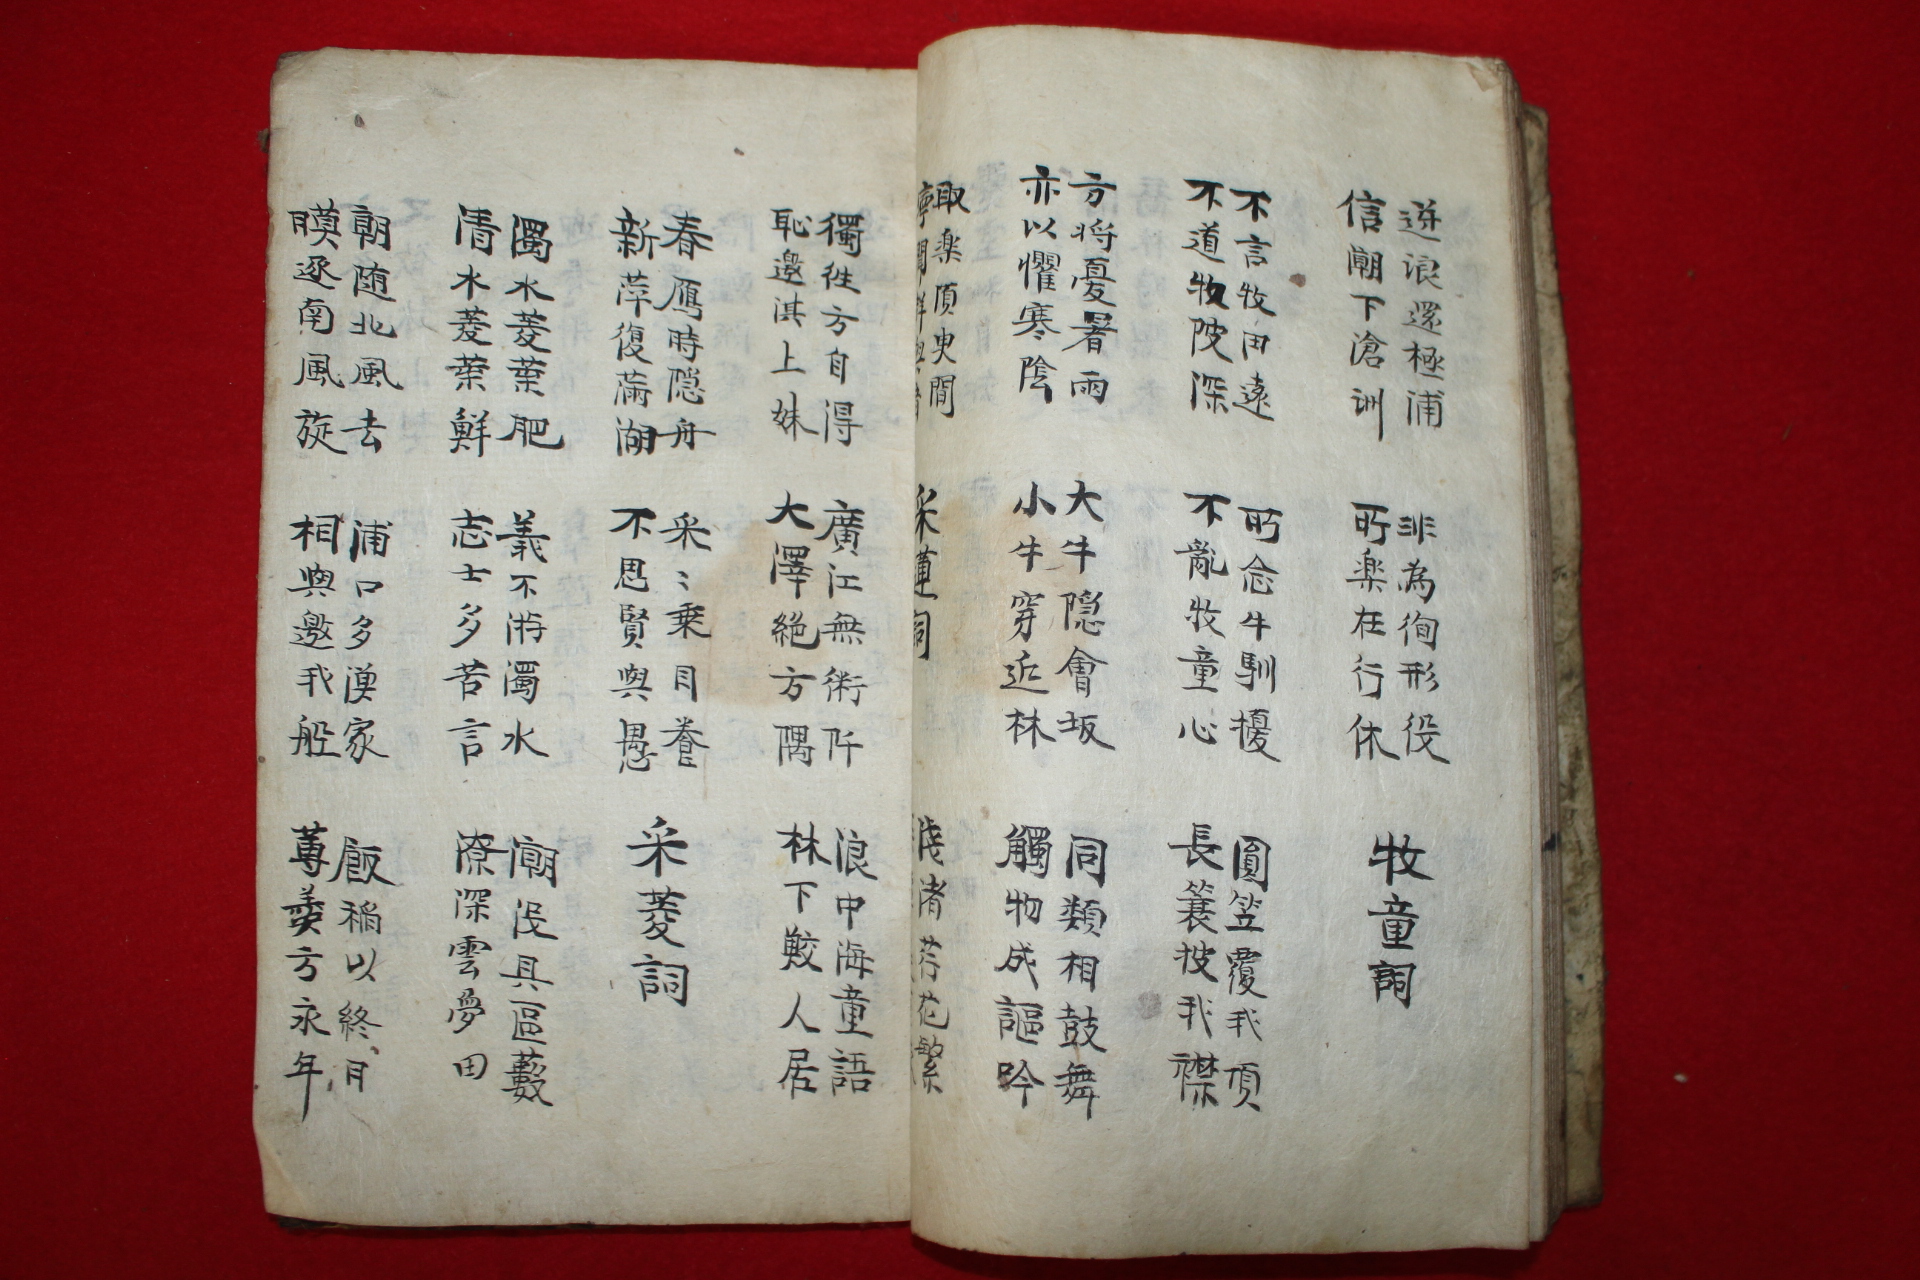 逆浪還極浦
信潮下滄洲
非為徇形役
所楽在行休
牧童詞
不言牧田遠
不道牧陂深
所念牛馴擾
不亂牧童心
圓笠覆我頂
長蓑披我襟
方将憂暑雨
亦以懼寒陰
大牛隠會坂
小牛穿近林
同類相鼓舞
觸物成謳吟
取楽須臾間
采蓮詞
淺渚荇花繁
獨往方自得
恥邀淇上姝
廣江無術阡
大澤絕方隅
浪中海童語
林下鮫人居
春鴈時隠舟
新萍復滿湖
采〻乗日養
不思賢與愚
采菱詞
濁水菱葉肥
清水菱葉鮮
義不游濁水
志士多苦言
潮沒具區藪
潦深雲夢田
朝随北風去
膜逐南風旋
浦口多漁家
相與邀我船
飯稲以終日
蓴羹方永年